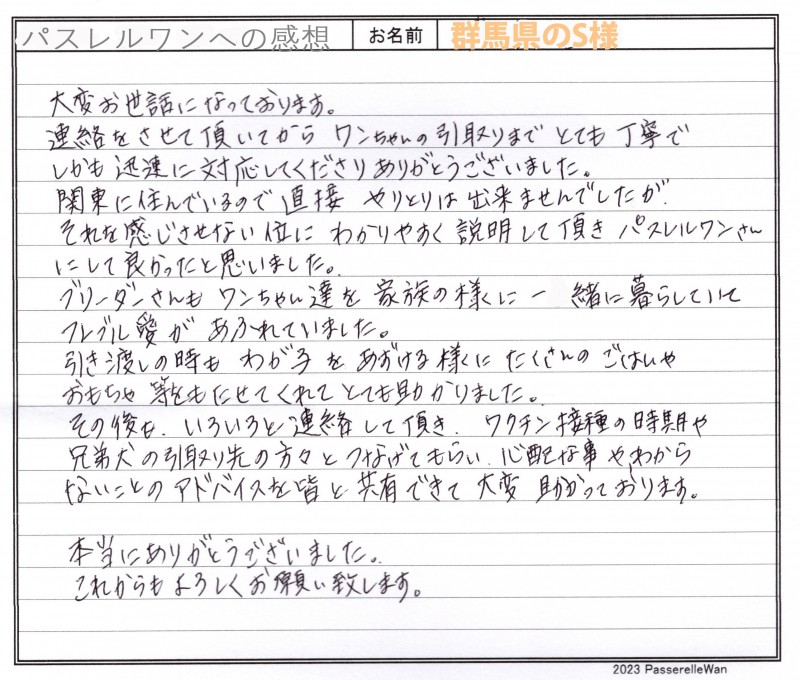 パスレルワンへの感想 お名前 群馬県のS様
大変お世話になっております。
連絡をさせて頂いてから ワンちゃんの引取りまで とても 丁寧で
しかも 迅速に対応してくださりありがとうございました。
関東に住んでいるので 直接 やりとりは 出来ませんでしたが、
それを感じさせない位に わかりやすく 説明して頂き パスレルワンさん
にして良かったと思いました。
ブリーダーさんも ワンちゃん達を 家族の様に一 緒に暮らしていて
フレブル愛が あふれていました。
引き渡しの時も わが子を あずける様に たくさんの ごはんや
おもちゃ 等をもたせてくれて とても助かりました。
その後も、いろいろと連絡して頂き、ワクチン接種の時期や
兄弟犬の引取り先の方々と つなげてもらい、心配な事やわから
ないことの アドバイスを皆と 共有できて 大変 助かっております。
本当にありがとうございました。
これからも よろしくお願い致します。
2023 PasserelleWan